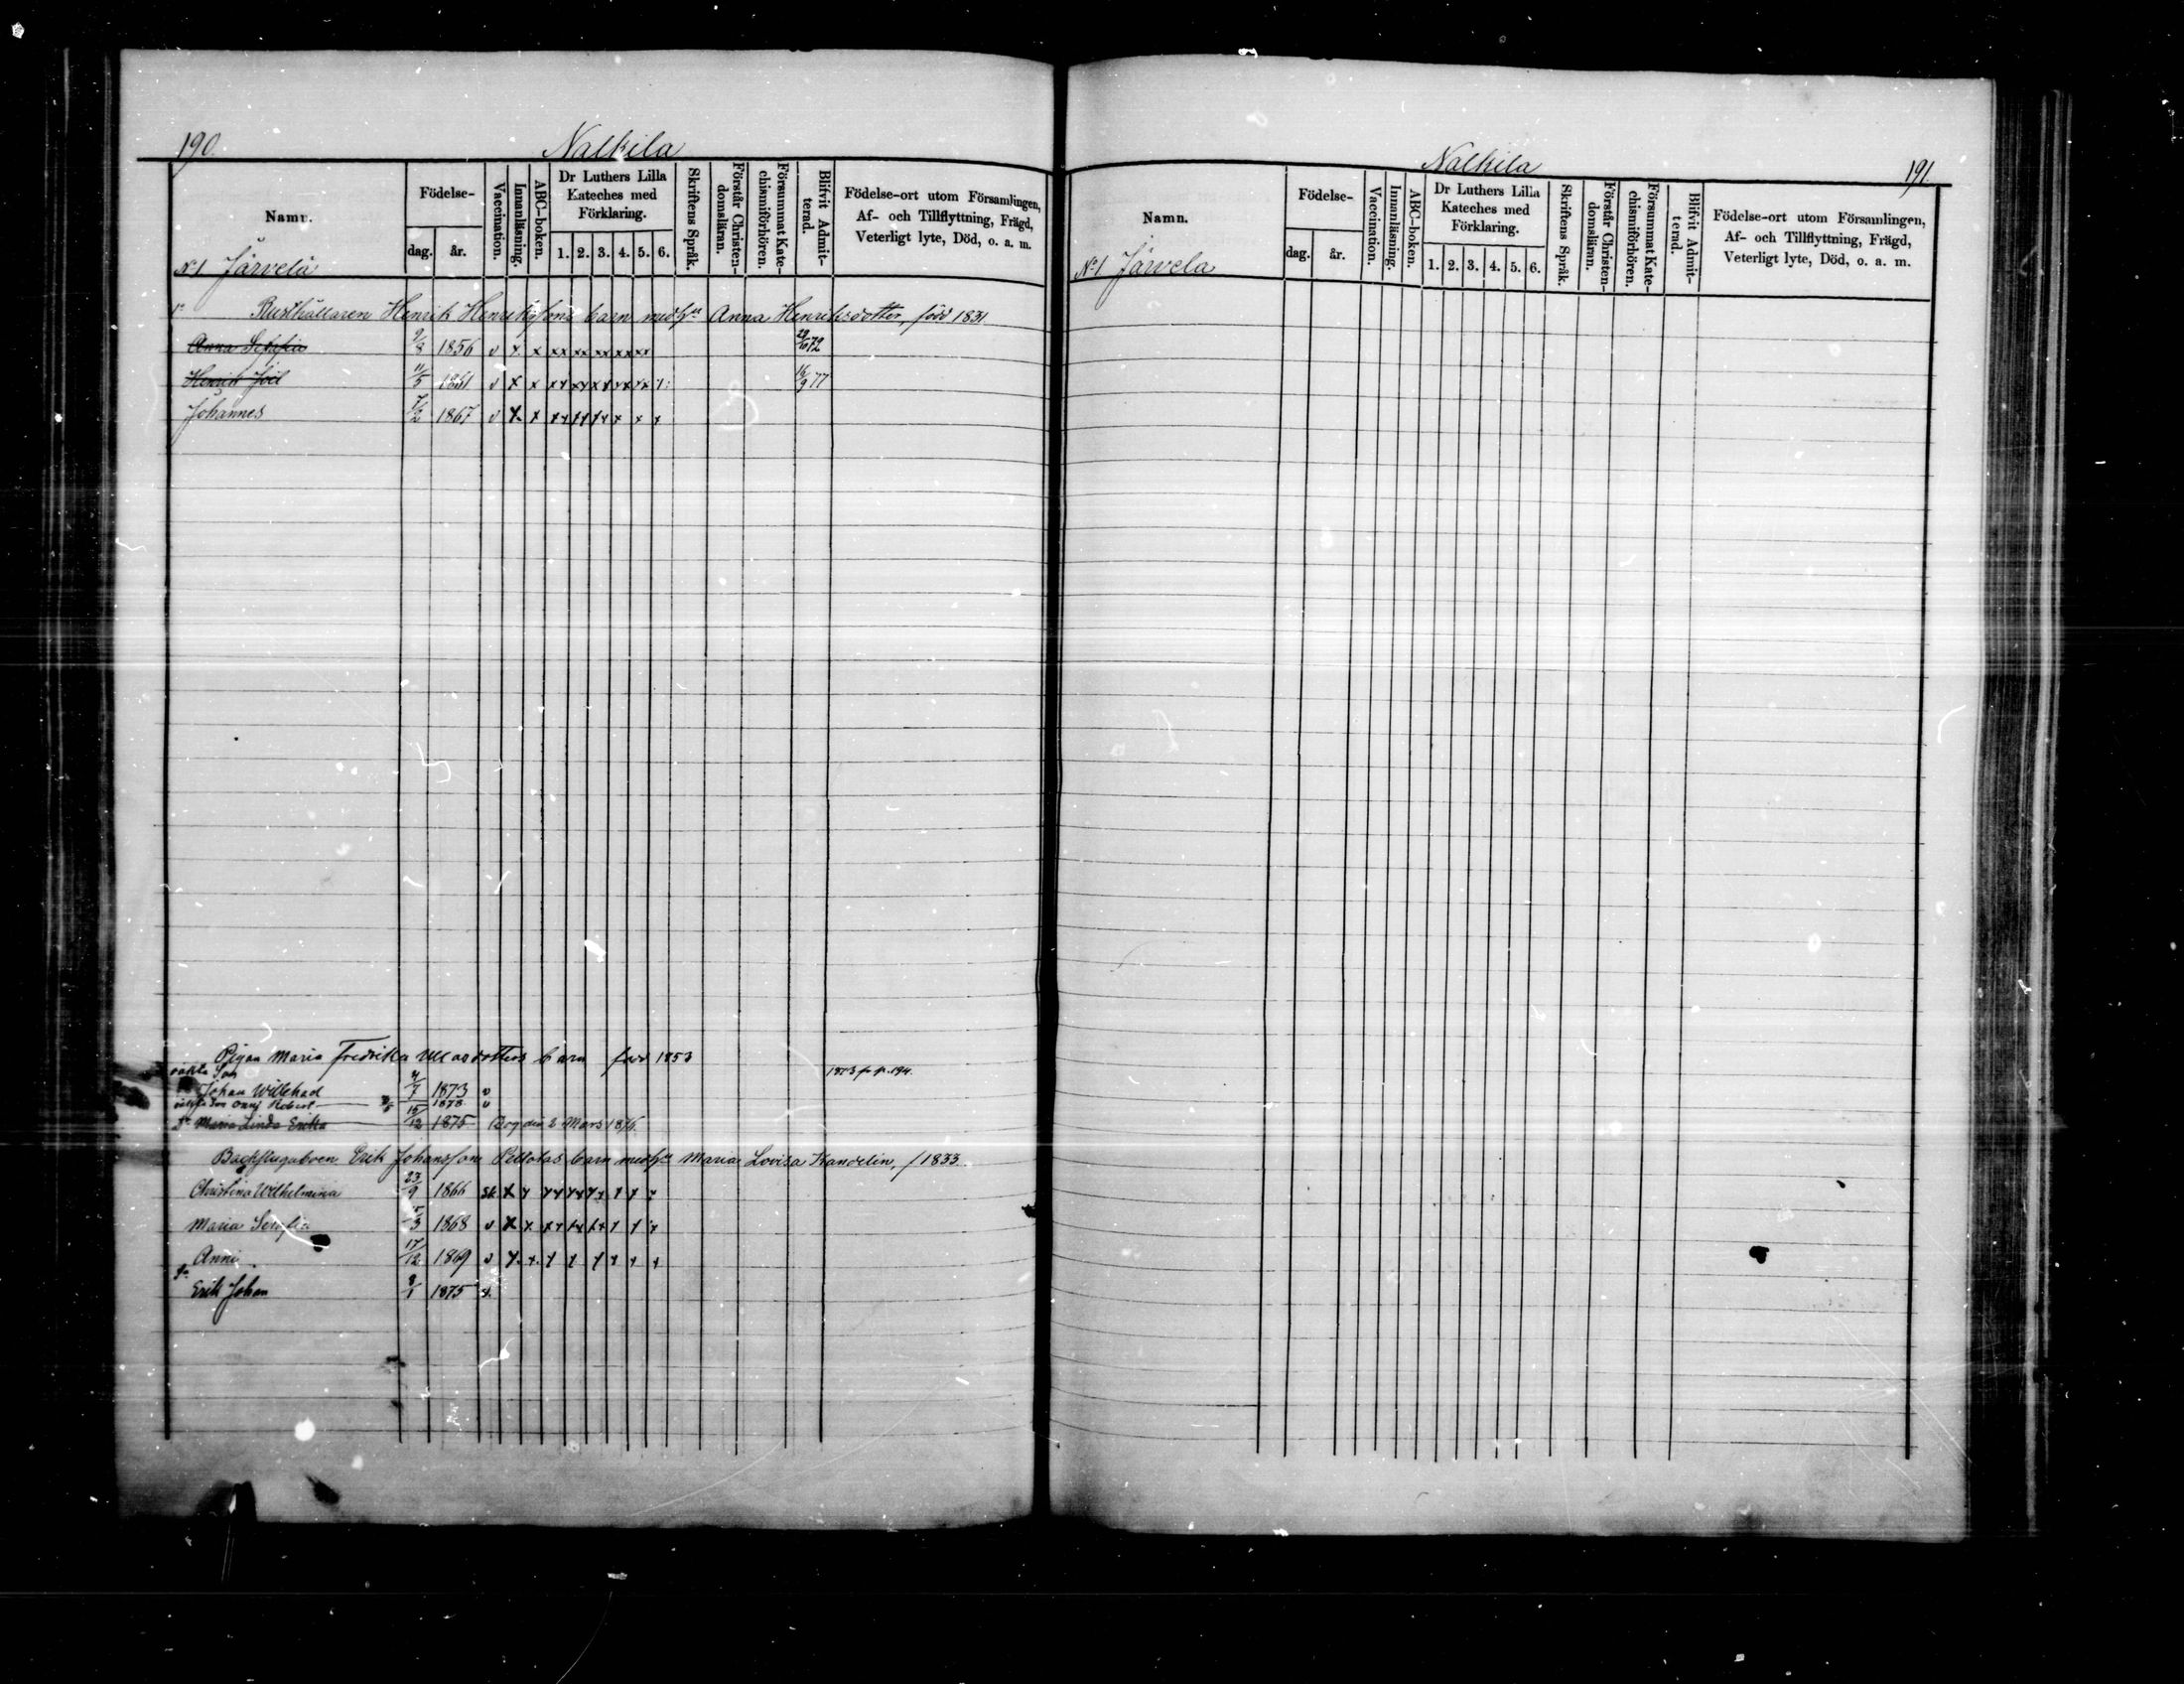 190. Nalkila
Namn. Födelse- dag. år. Vaccination. Innanläsning. ABC-boken. Dr Luthers Lilla Kateches med Förklaring. 1. 2. 3. 4. 5. 6. Skriftens Språk. Förstår Christendomsläran. Försummat Katechismiförhören. Blifvit Admitterad. Födelse-ort utom Församlingen, Af- och Tillflyttning, Frägd, Veterligt lyte, Död, o. a. m.
No 1 Järvelä
Rusthållaren Henrik Henrikssons barn med h:u Anna Henriksdotter, född 1831
Anna Sofia 9/8 1856 v x x xx xx xx xx xx 72
Henrik Joel 11/5 1861 v x x xx xx xx xx xx 16/9 77
Johannes 7/2 1867 v x x xx xx xx x x x
Pigan Maria Fredrika barn född 1853
oäkta Son
Johan Willehad 4/7 1873 v
oäkta Son Robert 1878 v
Maria Linda Erika 15/12 1875 Dog den 2 Mars 1876.
Erik Johanssons barn med h:u Maria Lovisa Kandelin, f 1833
Christina Wilhelmina 23/9 1866
Maria Serafia 15/3 1868 v x x xx xx xx x x x
Anni 17/12 1869 v x x x x x x x x
Erik Johan 1875
Nalkila 191.
Namn. Födelse- dag. år. Vaccination. Innanläsning. ABC-boken. Dr Luthers Lilla Kateches med Förklaring. 1. 2. 3. 4. 5. 6. Skriftens Språk. Förstår Christendomsläran. Försummat Katechismiförhören. Blifvit Admitterad. Födelse-ort utom Församlingen, Af- och Tillflyttning, Frägd, Veterligt lyte, Död, o. a. m.
No 1 Järvela